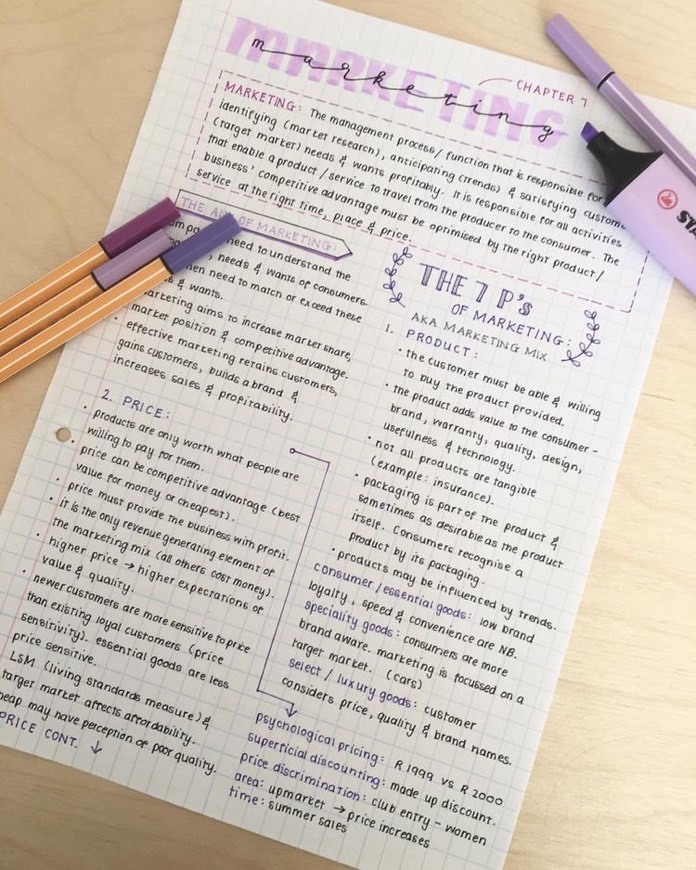 MARKETING
marketing
CHAPTER 7
MARKETING: The management process/ function that is responsible for
identifying (market research), anticipating (trends) & satisfying customer
(target market) needs & wants profitably. It is responsible for all activities
that enable a product / service to travel from the producer to the consumer. The
business' competitive advantage must be optimised by the right product/
service at the right time, place & price.
THE AIM OF MARKETING:
need to understand the
needs & wants of consumers.
need to match or exceed these
& wants.
marketing aims to increase market share,
market position & competitive advantage.
• effective marketing retains customers,
gains customers, builds a brand &
increases sales & profitability.
2. PRICE:
• products are only worth what people are
willing to pay for them.
• price can be competitive advantage (best
value for money or cheapest).
• price must provide the business with profit.
• it is the only revenue generating element of
the marketing mix (all others cost money).
• higher price → higher expectations of
value & quality.
• newer customers are more sensitive to price
than existing loyal customers (price
sensitivity). essential goods are less
price sensitive.
LSM (living standards measure) &
target market affects affordability.
cheap may have perception of poor quality.
PRICE CONT. ↓
THE 7 P's
OF MARKETING:
AKA MARKETING MIX
1. PRODUCT:
• the customer must be able & willing
to buy the product provided.
• the product adds value to the consumer -
brand, warranty, quality, design,
usefulness & technology.
• not all products are tangible
(example: insurance).
• packaging is part of the product &
sometimes as desirable as the product
itself. Consumers recognise a
product by its packaging.
• products may be influenced by trends.
consumer/essential goods: low brand
loyalty, speed & convenience are NB.
speciality goods: consumers are more
brand aware. marketing is focussed on a
target market. (cars)
select / luxury goods: customer
considers price, quality & brand names.
psychological pricing: R 1999 vs R 2000
superficial discounting: made up discount.
price discrimination: club entry - women
area: upmarket → price increases
time: summer sales